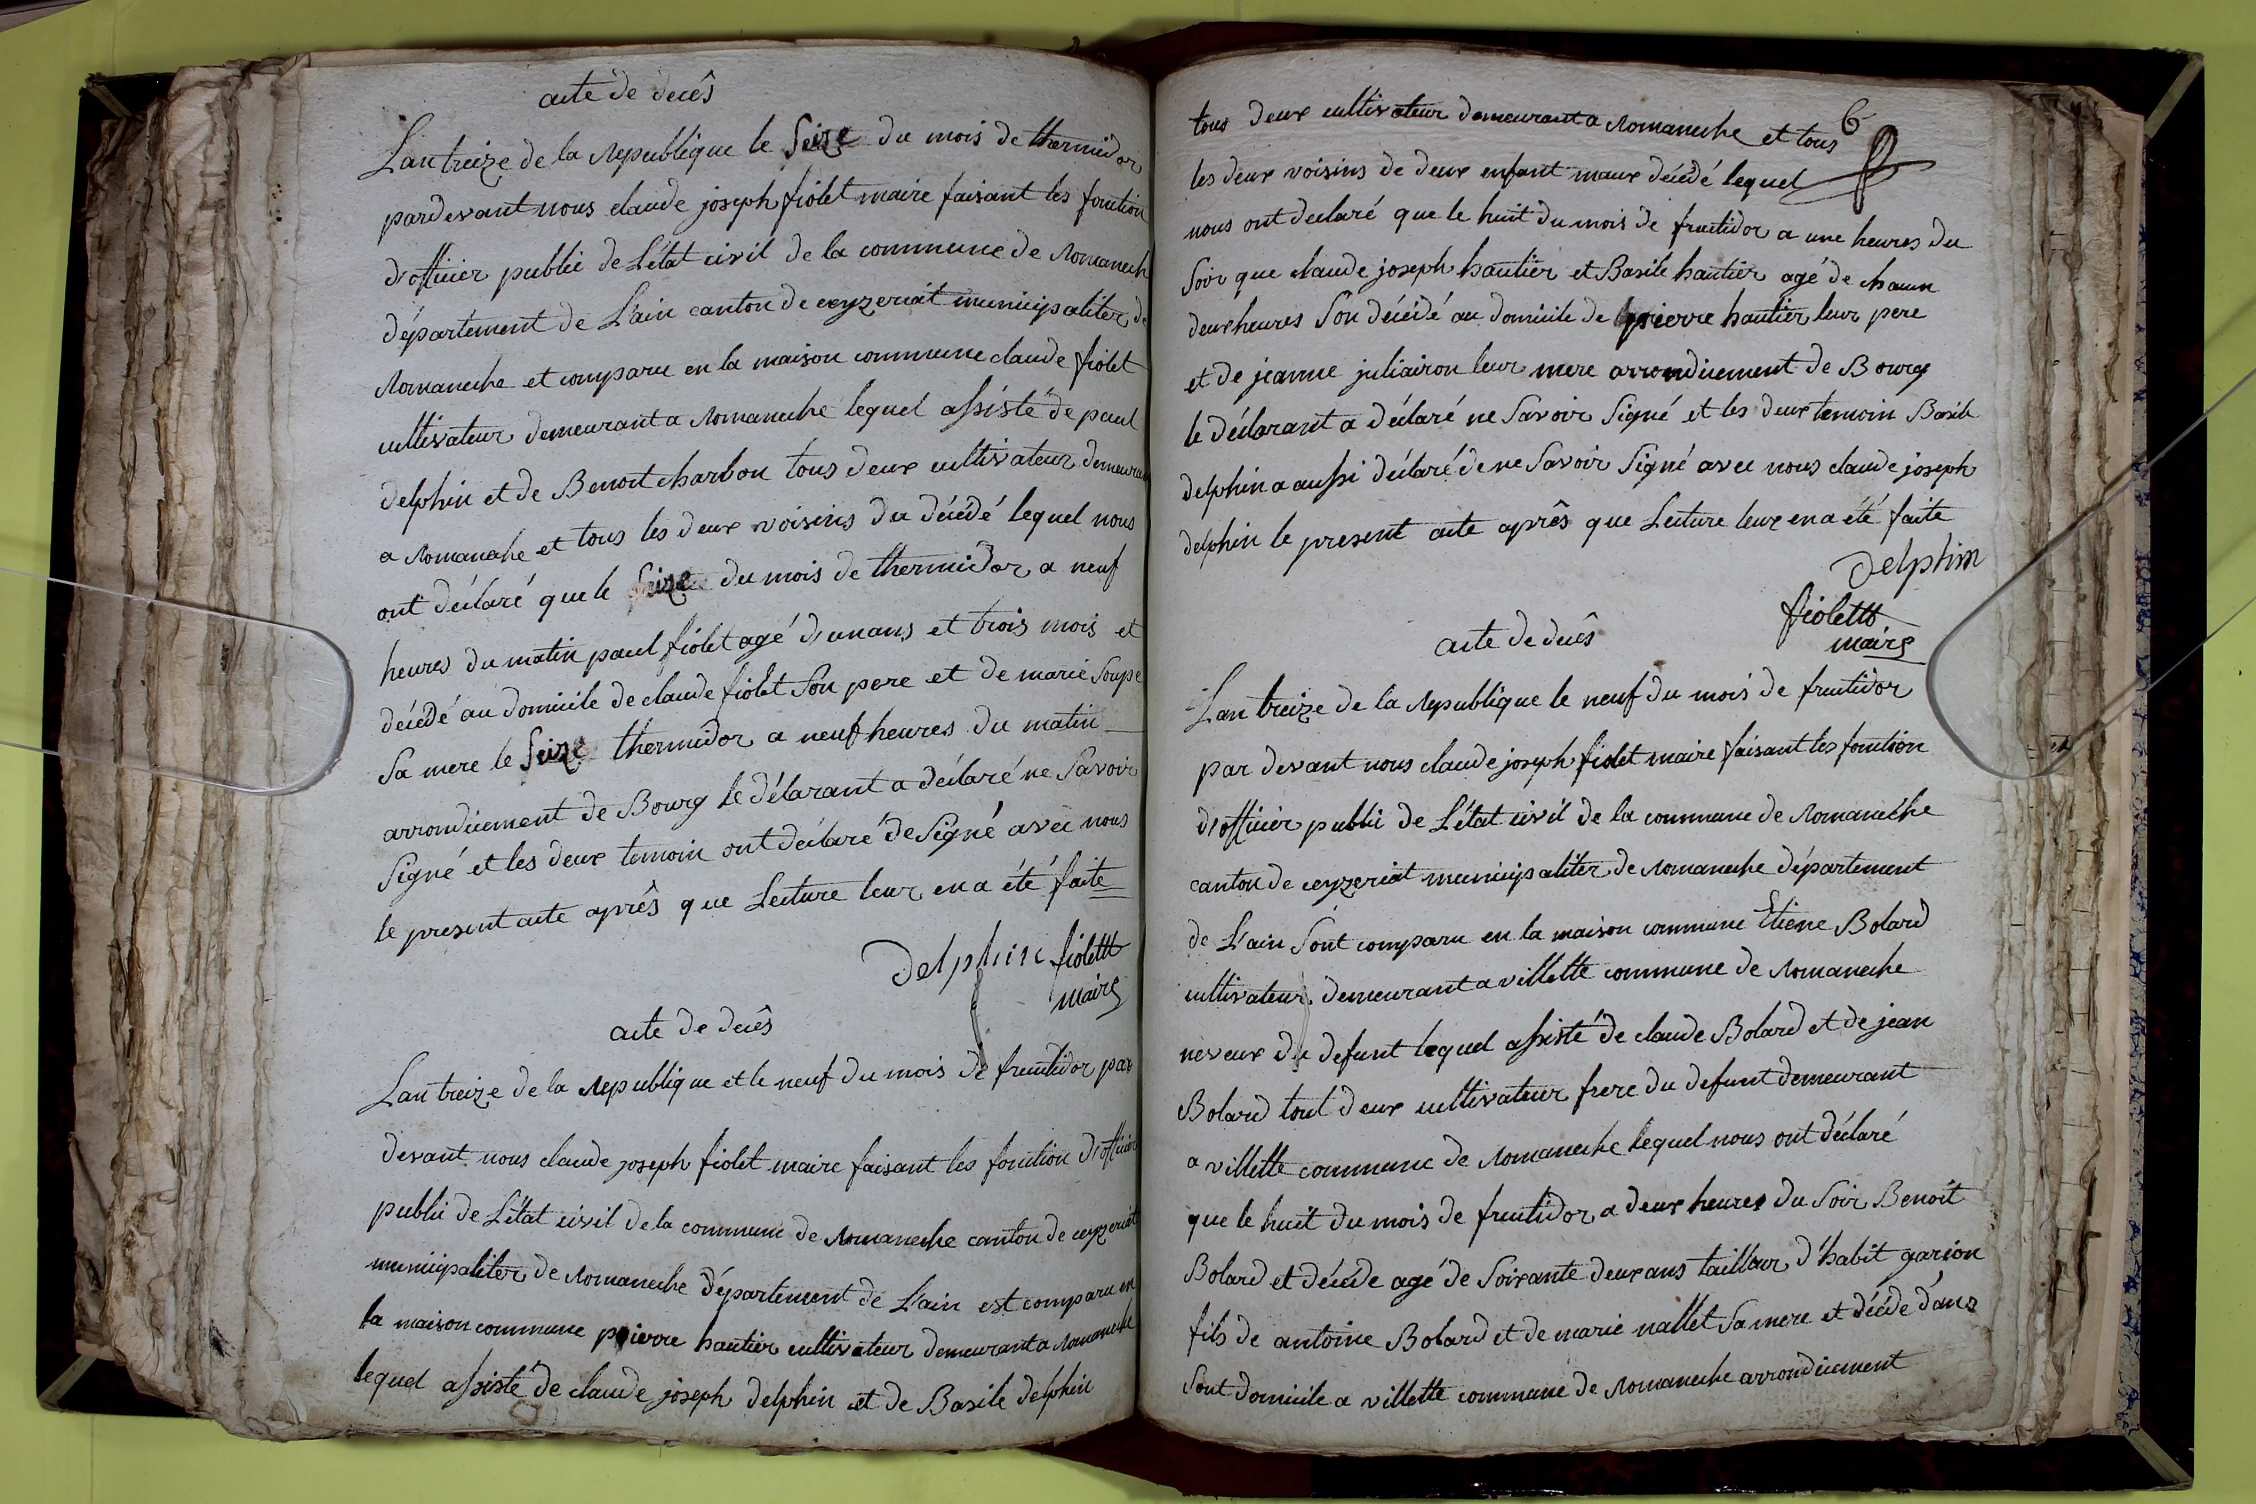 acte de decês
Lan treize de la république le seize du mois de thermidor
pardevant nous claude joseph fiolet maire faisant les fonction
d'officier public de L'état civil de la commune de Romanech
département de L'ain canton de ceyzeriat municipaliter de
Romaneche et comparu en la maison commune claude fiolet
cultivateur demeurant a Romaneche lequel assisté de paul
delphin et de Benoit charbon tous deux cultivateur demeuran
a Romaneche et tous les deux voisins du décédé lequel nous
ont déclaré que le seize du mois de thermidor a neuf
heures du matin paul fiolet agé d'unans et trois mois et
décédé au domicile de claude fiolet son pere et de marie soupe
sa mere le seize thermidor a neuf heures du matin
arrondicement de Bourg le déclarant a déclaré ne savoir
signé et les deux temoin ont déclaré de signé avec nous
le present acte après que Lecture leur en a été faite
delphin fiolettt
maire
acte de decês
Lan treize de la république et le neuf du mois de fructidor par
devant nous claude joseph fiolet maire faisant les fonction d'officier
public de L'état civil de la commune de Romaneche canton de ceyzeriat
municipaliter de Romaneche département de L'ain est comparu en
la maison commune pierre hautier cultivateur demeurant a Romaneche
lequel assisté de claude joseph delphin et de Basile delphin
6
tous deux cultivateur demeurant a Romaneche et tous
les deux voisins de deux enfant maux décédé lequel
nous ont declaré que le huit du mois de fructidor a une heures du
soir que claude joseph hautier et Basile hautier agé de chacun
deux heures son décédé au domicile de pierre hautier leur pere
et de jeanne juliairon leur mere arrondicement de Bourg
le déclarant a déclaré ne savoir signé et les deux temoin Basile
delphin a aussi déclaré de ne savoir signé avec nous claude joseph
delphin le present acte après que Lecture leur en a été faite
delphin
fiolettt
maire
acte de decês
Lan treize de la république le neuf du mois de fructidor
par devant nous claude joseph fiolet maire faisant les fonction
d'officier public de L'état civil de la commune de Romaneche
canton de ceyzeriat municipaliter de Romaneche département
de L'ain sont comparu en la maison commune Etiene Bolard
cultivateur demeurant a villette commune de Romaneche
neveux du defunt lequel assisté de claude Bolard et de jean
Bolard tout deux cultivateur frere du defunt demeurant
a villette commune de Romaneche lequel nous ont déclaré
que le huit du mois de fructidor a deux heures du soir Benoit
Bolard et décéde agé de soixante deux ans tailleur d'habit garson
fils de antoine Bolard et de marie nallet sa mere et décéde dans
sont domicile a villette commune de Romaneche arrondicement